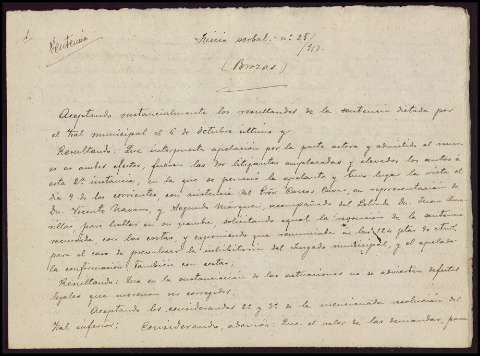 Sentencia
Juicio verbal - nº 251
/912.
(Brozas)
Aceptando sustancialmente los resultandos de la sentencia dictada por
el Tral municipal el 6 de Octubre ultimo y
Resultando: Que interpuesta apelación por la parte actora y admitida al
en ambos efectos, fueron las dos litigantes emplazadas y elevados los autos á
esta 2ª instancia, en la que se personó la apelante y tuvo lugar la vista el
día 9 de los corrientes, con asistencia del Prór en representación de
Dn Vicente y Segundo Márquez, acompañado del Letrado Dn Juan
solicitando aquel la revocación de la sentencia
recurrida con las costas, y exponiendo que renunciaba
para el caso de la inhibitoria del Juzgado municipal, y el apelado
la confirmación también con costas;
Resultando: Que en la sustanciación de las actuaciones no se advierten defectos
legales que merezcan ser corregidos.
Aceptando los considerandos 2º y 3º de la mencionada resolución del
Tral inferior; Considerando, además: Que el valor de las demandas, para